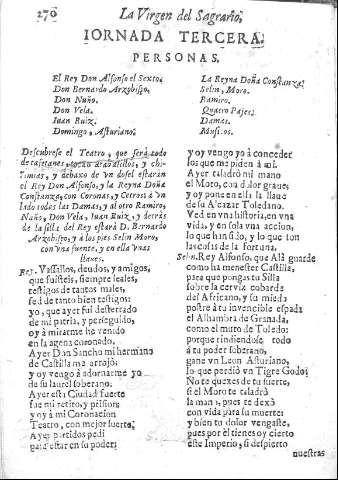 270 La Virgen del Sagrario,
IORNADA TERCERA.
PERSONAS.
El Rey Don Alfonso el Sexto.
Don Bernardo Arzobispo.
Don Nuño.
Don Vela.
Iuan Ruiz.
Domingo, Asturiano.
La Reyna Doña Constanza.
Selin, Moro.
Ramiro.
Quatro Pajes.
Damas.
Musicos.
Descubrese el Teatro, que será todo
de tafetanes, tocan atabalillos, y chi-
rimias, y debaxo de vn dosel estarán
el Rey Don Alfonso, y la Reyna Doña
Constanza, con Coronas, y Cetros à vn
lado todas las Damas, y al otro Ramiro,
Nuño, Don Vela, Iuan Ruiz, y detrás
de la silla del Rey estará D. Bernardo
Arzobispo, y à los pies Selin Moro,
con vna fuente, y en ella vnas
llaues.
Rey. Vassallos, deudos, y amigos,
que fuisteis, siempre leales,
testigos de tantos males,
sed de tanto bien testigos:
yo, que ayer fui desterrado
de mi patria, y perseguido,
oy à mirarme he venido
en la agena coronado.
Ayer Don Sancho mi hermano
de Castilla me arrojó,
y oy vengo à adornarme yo
de su laurel soberano.
Ayer esta Ciudad fuerte
fue mi retiro, y prision,
y oy à mi Coronacion
Teatro, con mejor suerte.
Ayer partidos pedi
para estar en su poder,
y oy vengo yo à conceder
los que me piden à mi.
Ayer taladró mi mano
el Moro, con dolor graue,
y oy pone en ella la llaue
de su Alcazar Toledano.
Ved en vna historia, en vna
vida, y en sola vna accion,
lo que han sido, y lo que son
las cosas de la fortuna.
Selin. Rey Alfonso, que Alà guarde
como ha menester Castilla,
para que pongas tu Silla
sobre la ceruiz cobarde
del Africano, y su miedo
postre à tu inuencible espada
el Alhambra de Granada,
como el muro de Toledo:
porque rindiendose todo
à tu poder soberano,
gane vn Leon Asturiano,
lo que perdió vn Tigre Godo;
No te quexes de tu suerte,
si el Moro te taladrò
la mano, pues te dexò
con vida para su muerte:
y bien tu dolor vengaste,
pues por él tienes oy cierto
este Imperio, si despierto
nuestras